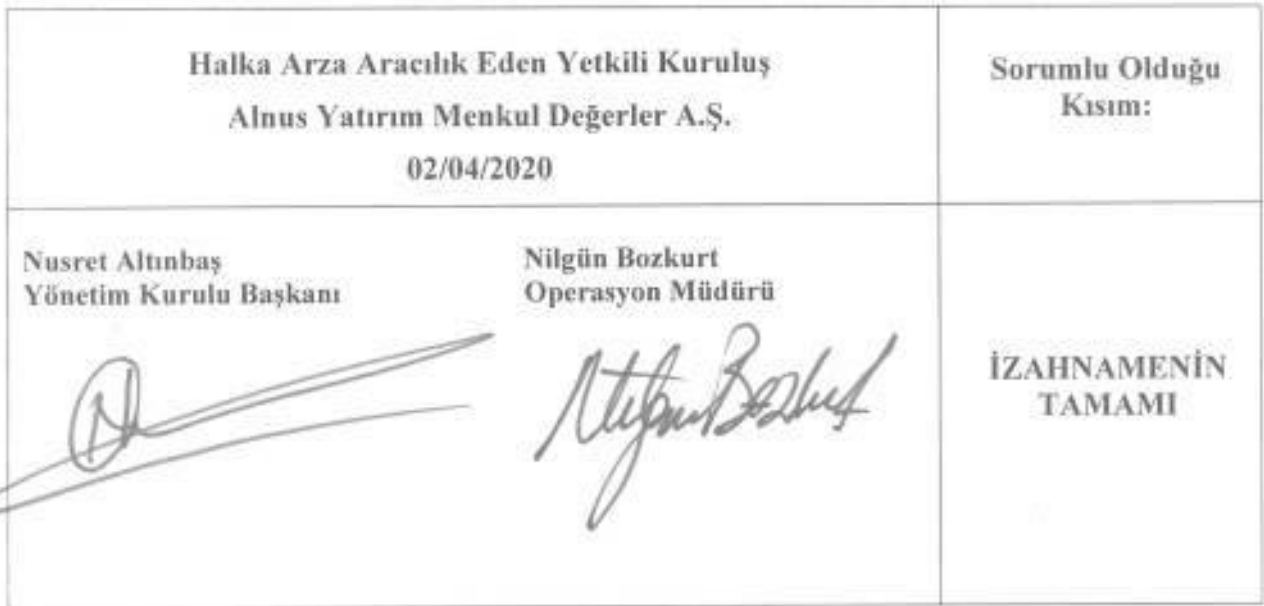 Halka Arza Aracılık Eden Yetkili Kuruluş
Alnus Yatırım Menkul Değerler A.Ş.
02/04/2020
Sorumlu Olduğu
Kısım:
Nusret Altınbaş
Yönetim Kurulu Başkanı
Nilgün Bozkurt
Operasyon Müdürü
Nilgün Bozkurt
İZAHNAMENİN
TAMAMI